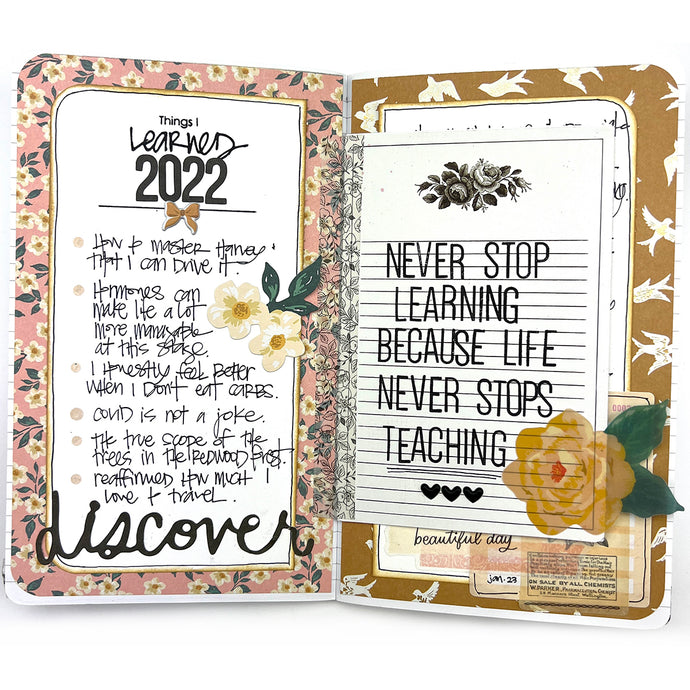 Things I
Learned
2022
How to master Harvey &
that I can Drive it
Hormones can
make life a lot
more manageable
at this stage.
I Honestly feel better
when I Don't eat carbs.
covid is not a joke.
the true scope of the
trees in the Redwood Forest
reaffirmed How much I
love to travel.
discover
NEVER STOP
LEARNING
BECAUSE LIFE
NEVER STOPS
TEACHING
beautiful day
jan·23
ON SALE BY ALL CHEMISTS
W. PARKER, PHARMACEUTICAL CHEMIST